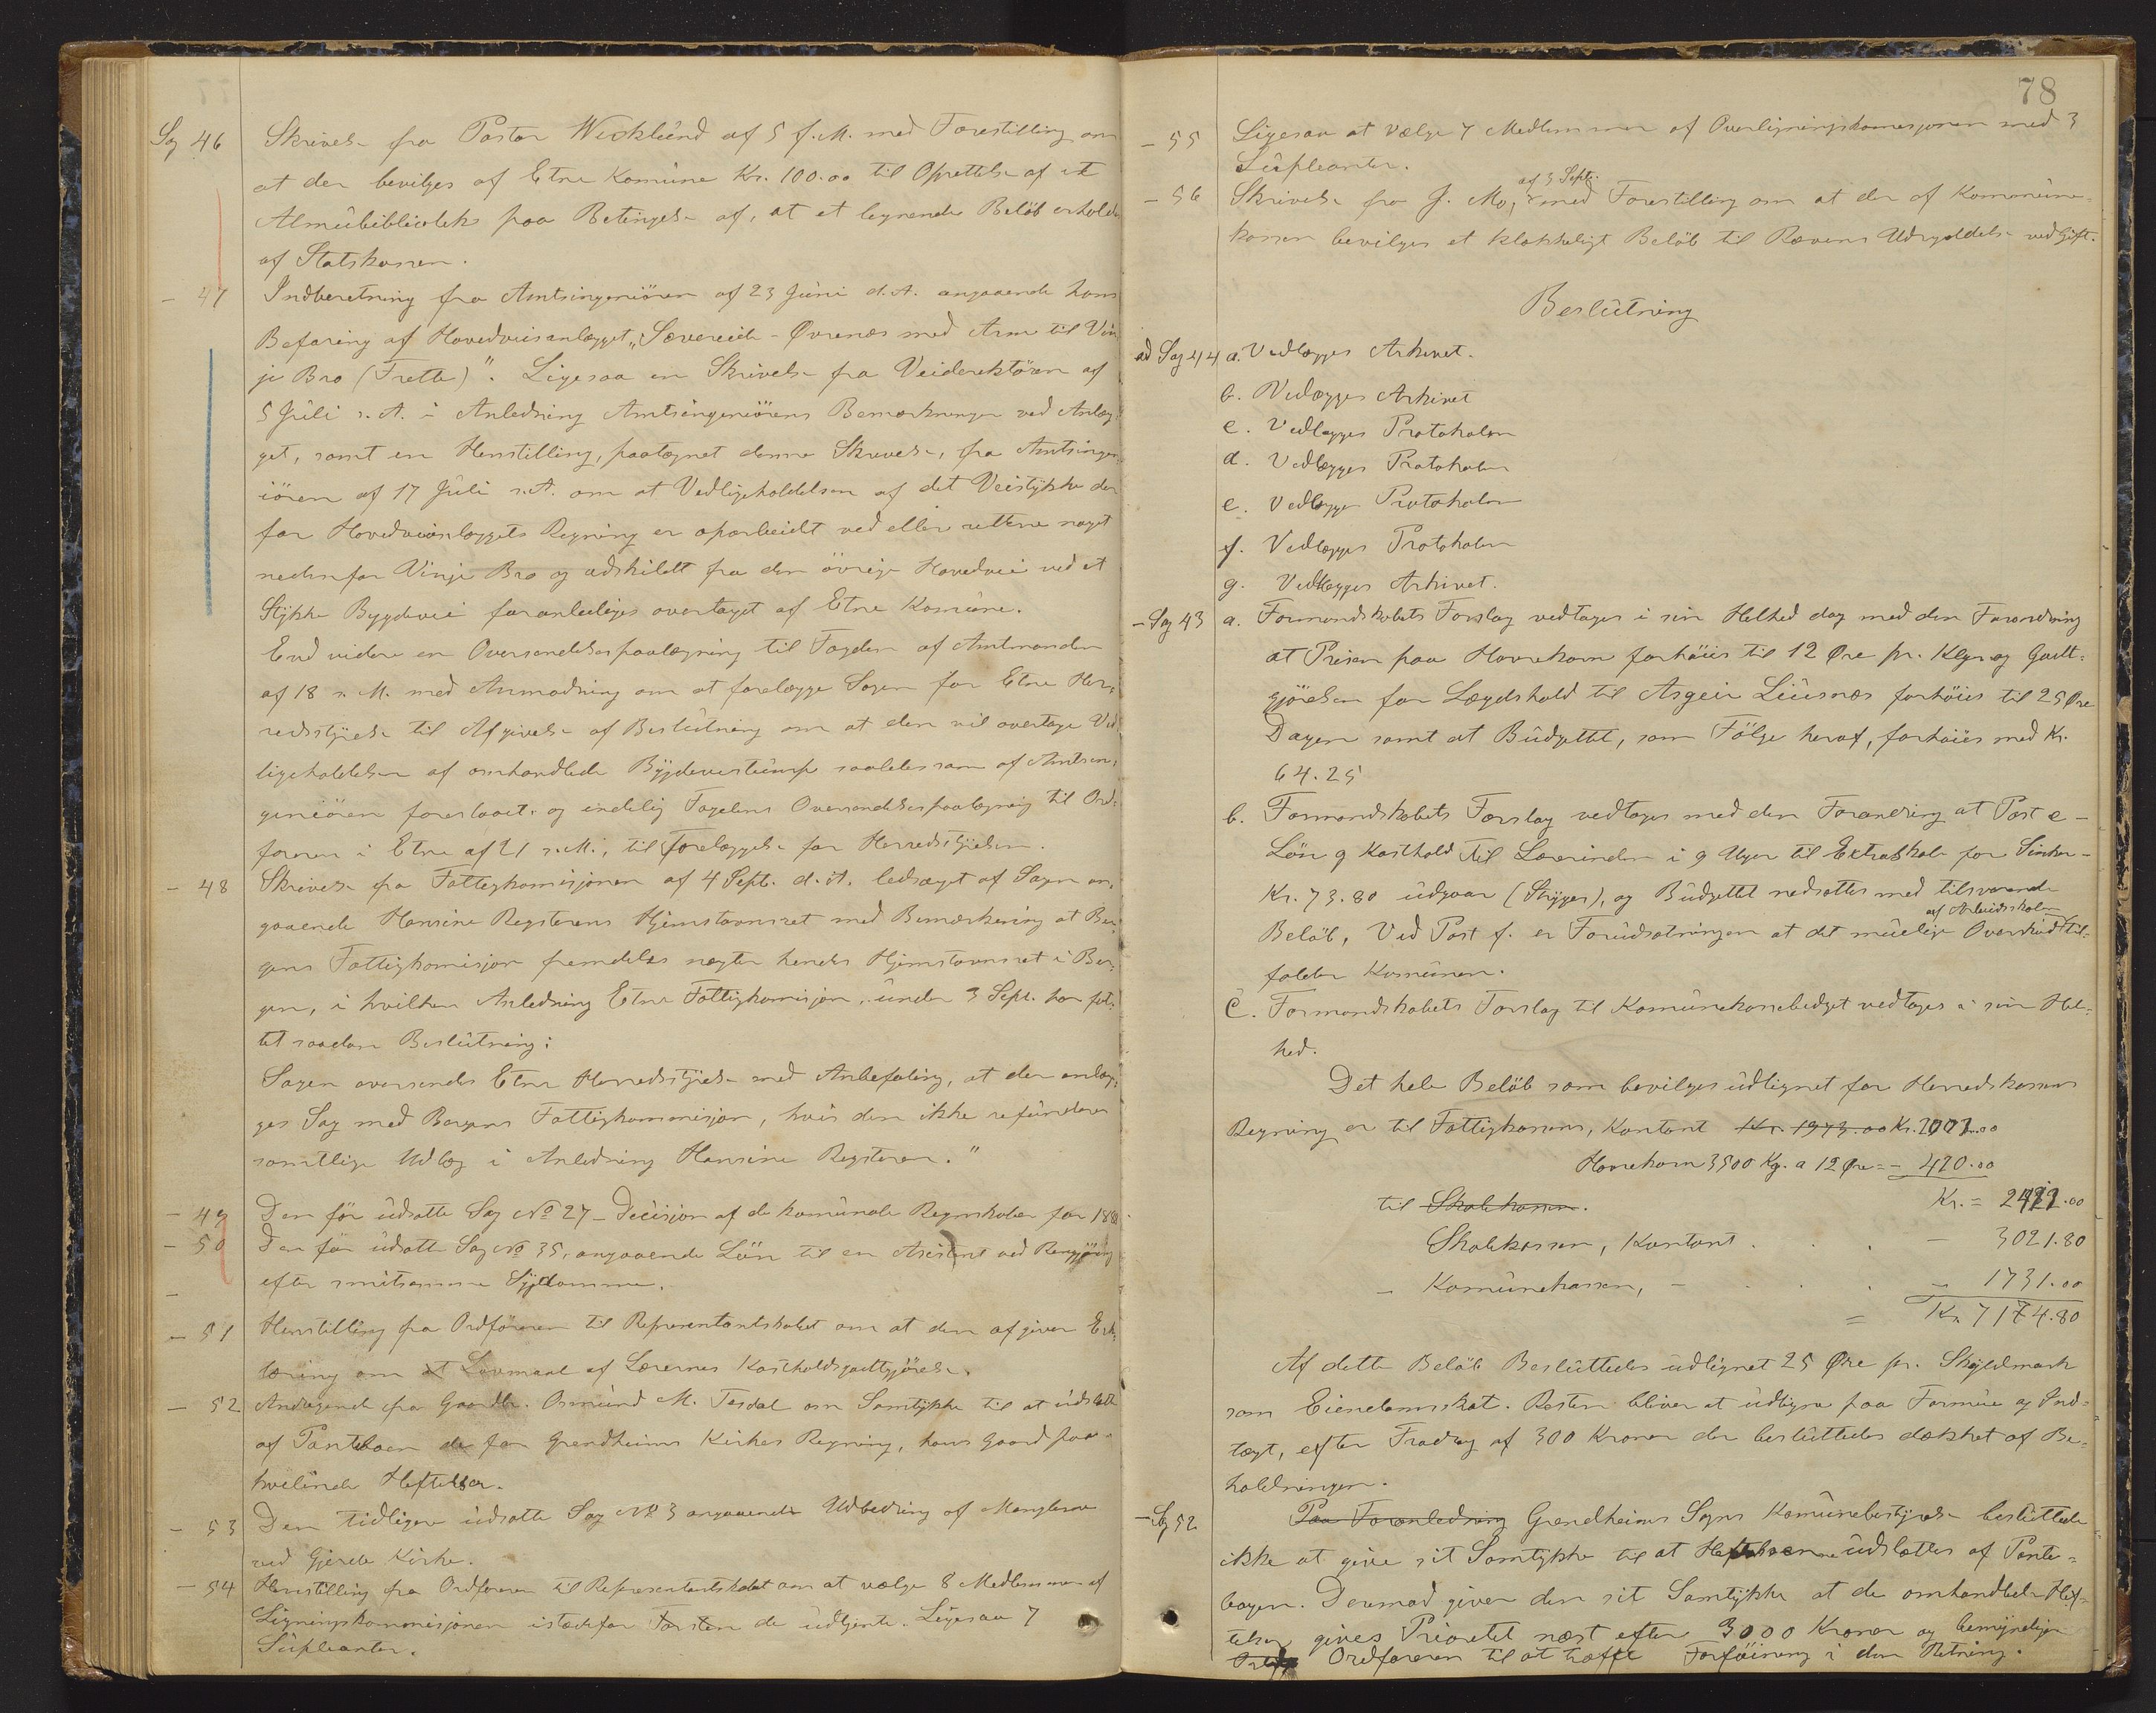 Sag 46 Skrivelse fra Pastor Wicklund af 5 f. M. med Forestilling om
at der bevilges af Etne Komune Kr. 100.00 til Oprettelse af et
Almuebibliotek paa Betingelse af, at et lignende Beløb erholdes
af Statskassen.
- 47 Indberetning fra Amtsingeniøren af 23 Juni d. A. angaaende hans
Befaring af Hovedveisanlægget "Sævereide - Øvrenæs med Arm til Vin-
je Bro (Frette)". Ligesaa en Skrivelse fra Veidirektøren af
5 Juli s. A. i Anledning Amtsingeniørens Bemærkninger ved Anlæg-
get, samt en Henstilling, paategnet denne Skrivelse, fra Amtsingen-
iøren af 17 Juli s. A. om at Vedligeholdelsen af det Veistykke der
for Hovedveianlæggets Regning er oparbeidt ved eller rettere noget
nedenfor Vinje Bro og adskildt fra den øvrige Hovedvei ved et
Stykke Bygdevei foranlediges overtaget af Etne Komune.
End videre en Oversendelsespaategning til Fogden af Amtmanden
af 18 s. M. med Anmodning om at forelægge Sagen for Etne Her-
redsstyrelse til Afgivelse af Beslutning om at den vil overtage Ved-
ligeholdelsen af omhandlede Bygdeveistump saaledes som af Amtsin-
geniøren foreslaaet, og endelig Fogdens Oversendelsespaategning til Ord-
føreren i Etne af 21 s. M., til Forelæggelse for Herredsstyrelsen.
- 48 Skrivelse fra Fattigkomisjonen af 4 Sept. d. A. ledsaget af Sagen an-
gaaende Hansine Regsterens Hjemstavnsret med Bemærkning at Ber-
gens Fattigkomisjon fremdeles nægter hendes Hjemstavnsret i Ber-
gen, i hvilken Anledning Etne Fattigkomisjon, under 3 Sept. har fat-
tet saadan Beslutning:
Sagen oversendes Etne Herredsstyrelse med Anbefaling, at der anlæg-
ges Sag med Bergens Fattigkommisjon, hvis den ikke refunderer
samtlige Udlæg i Anledning Hansine Regsteren."
- 49 Den før udsatte Sag No 27 - Decisjon af de komunale Regnskaber for 188
- 50 Den før udsatte Sag No 35, angaaende Løn til en Asistent ved Rengjøring
efter smitsomme Sygdomme.
- 51 Henstilling fra Ordføreren til Representantskabet om at den afgiver Erk-
læring om at Lovmaal af Lærernes Kostholdsgodtgjørelse.
- 52 Andragende fra Gaardbr. Osmund M. Tesdal om Samtykke til at udslette
af Panteboen de for Grendheims Kirkes Regning, hans Gaard paa-
hvilende Heftelser.
- 53 Den tidligere udsatte Sag No 3 angaaende Udbedring af Manglerne
ved Gjerde Kirke.
- 54 Henstilling fra Ordføreren til Representantskabet om at vælge 8 Medlemmer af
Ligningskommisjonen istedetfor de udtjente. Ligesaa 7
Supleanter.
78
- 55 Ligesaa at vælge 7 Medlemmer af Overligningskomisjonen med 3
Supleanter.
af 3 Sept.
- 56 Skrivelse fra J. Mo, med Forestilling om at der af Kommune-
kassen bevilges et klækkeligt Beløb til Rævens Udryddelse ved Gift.
Beslutning
ad Sag 44 a. Vedlægges Arkivet.
b. Vedlægges Arkivet
c. Vedlægges Protokolen
d. Vedlægges Protokolen
e. Vedlægges Protokolen
f. Vedlægges Protokolen
g. Vedlægges Arkivet.
- Sag 43 a. Formandskabets Forslag vedtages i sin Helhed dog med den Forandring
at Prisen paa Havrekorn forhøies til 12 Øre pr. Klgr. og Godt-
gjørelsen for Lægdshold til Asgeir Liusnæs forhøies til 25 Øre
Dagen samt at Budgettet, som Følge heraf, forhøies med Kr.
64.25
b. Formandskabets Forslag vedtages med den Forandring at Post e -
Løn og Kosthold til Lærerinden i 9 Uger til Extraskole for Sinker -
Kr. 73.80 udgaar (Stryges), og Budgettet nedsættes med tilsvarende
af Arbeidsskolen
Beløb, Ved Post f. er Forudsætningen at det muelige Overskud til-
falder Komunen.
c. Formandskabets Forslag til Komunekassebudget vedtages i sin Hel-
hed.
Det hele Beløb som bevilges udlignet for Herredskassens
Regning er til Fattigkassens, Kontant Kr. 1973.00 Kr. 2002.00
Havrekorn 3500 Kg. a 12 Øre = - 420.00
til Skolekassen. Kr. = 2422.00
Skolekassen, Kontant . . . - 3021.80
- Komunekassen, - . . . - 1731.00
= Kr. 7174.80
Af dette Beløb Besluttedes udlignet 25 Øre pr. Skyldmark
som Eiendomsskat. Resten bliver at udligne paa Formue og Ind-
tægt, efter Fradrag af 300 Kroner der besluttedes dækket af Be-
holdningen.
- Sag 52 Paa Foranledning Grendheims Sogns Komunebestyrelse besluttede
ikke at give sit Samtykke til at Heftelserne udslettes af Pante-
bogen. Deremod giver den sit Samtykke at de omhandlede Hef-
telser gives Prioretet næst efter 3000 Kroner og bemyndiger
Ordføreren til at træffe Forføining i den Retning.